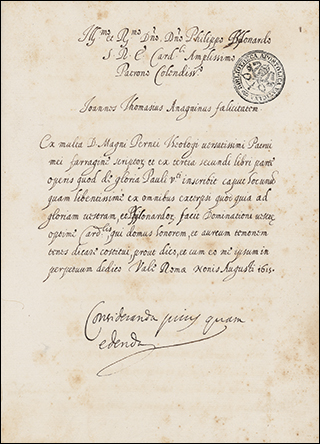 Ill.mo et R.mo Dno. Dno Philippo Filonardo
S. R. E. Card.li Amplissimo
Patrono Colendiss.o
Joannes Thomasius Anagninus felicitatem
Ex multa D. Magni Pernei Theologi versatissimi Patrui
mei farragine scriptor, et ex tertia secundi libri parte
operis quod de gloria Pauli V.ti inscribit caput secundum
quam libentissime ex omnibus excerpsi quod quia ad
gloriam vostram, et Filonardor. facit Dominationi vostrę
optimi Card.lis, qui domus honorem, et aureum
tenes dicare costitui, prout dico, et cum eo me ipsum in
perpetuum dedico Vale Romę Nonis Augusti 1615.
Consideranda prius quam
edenda